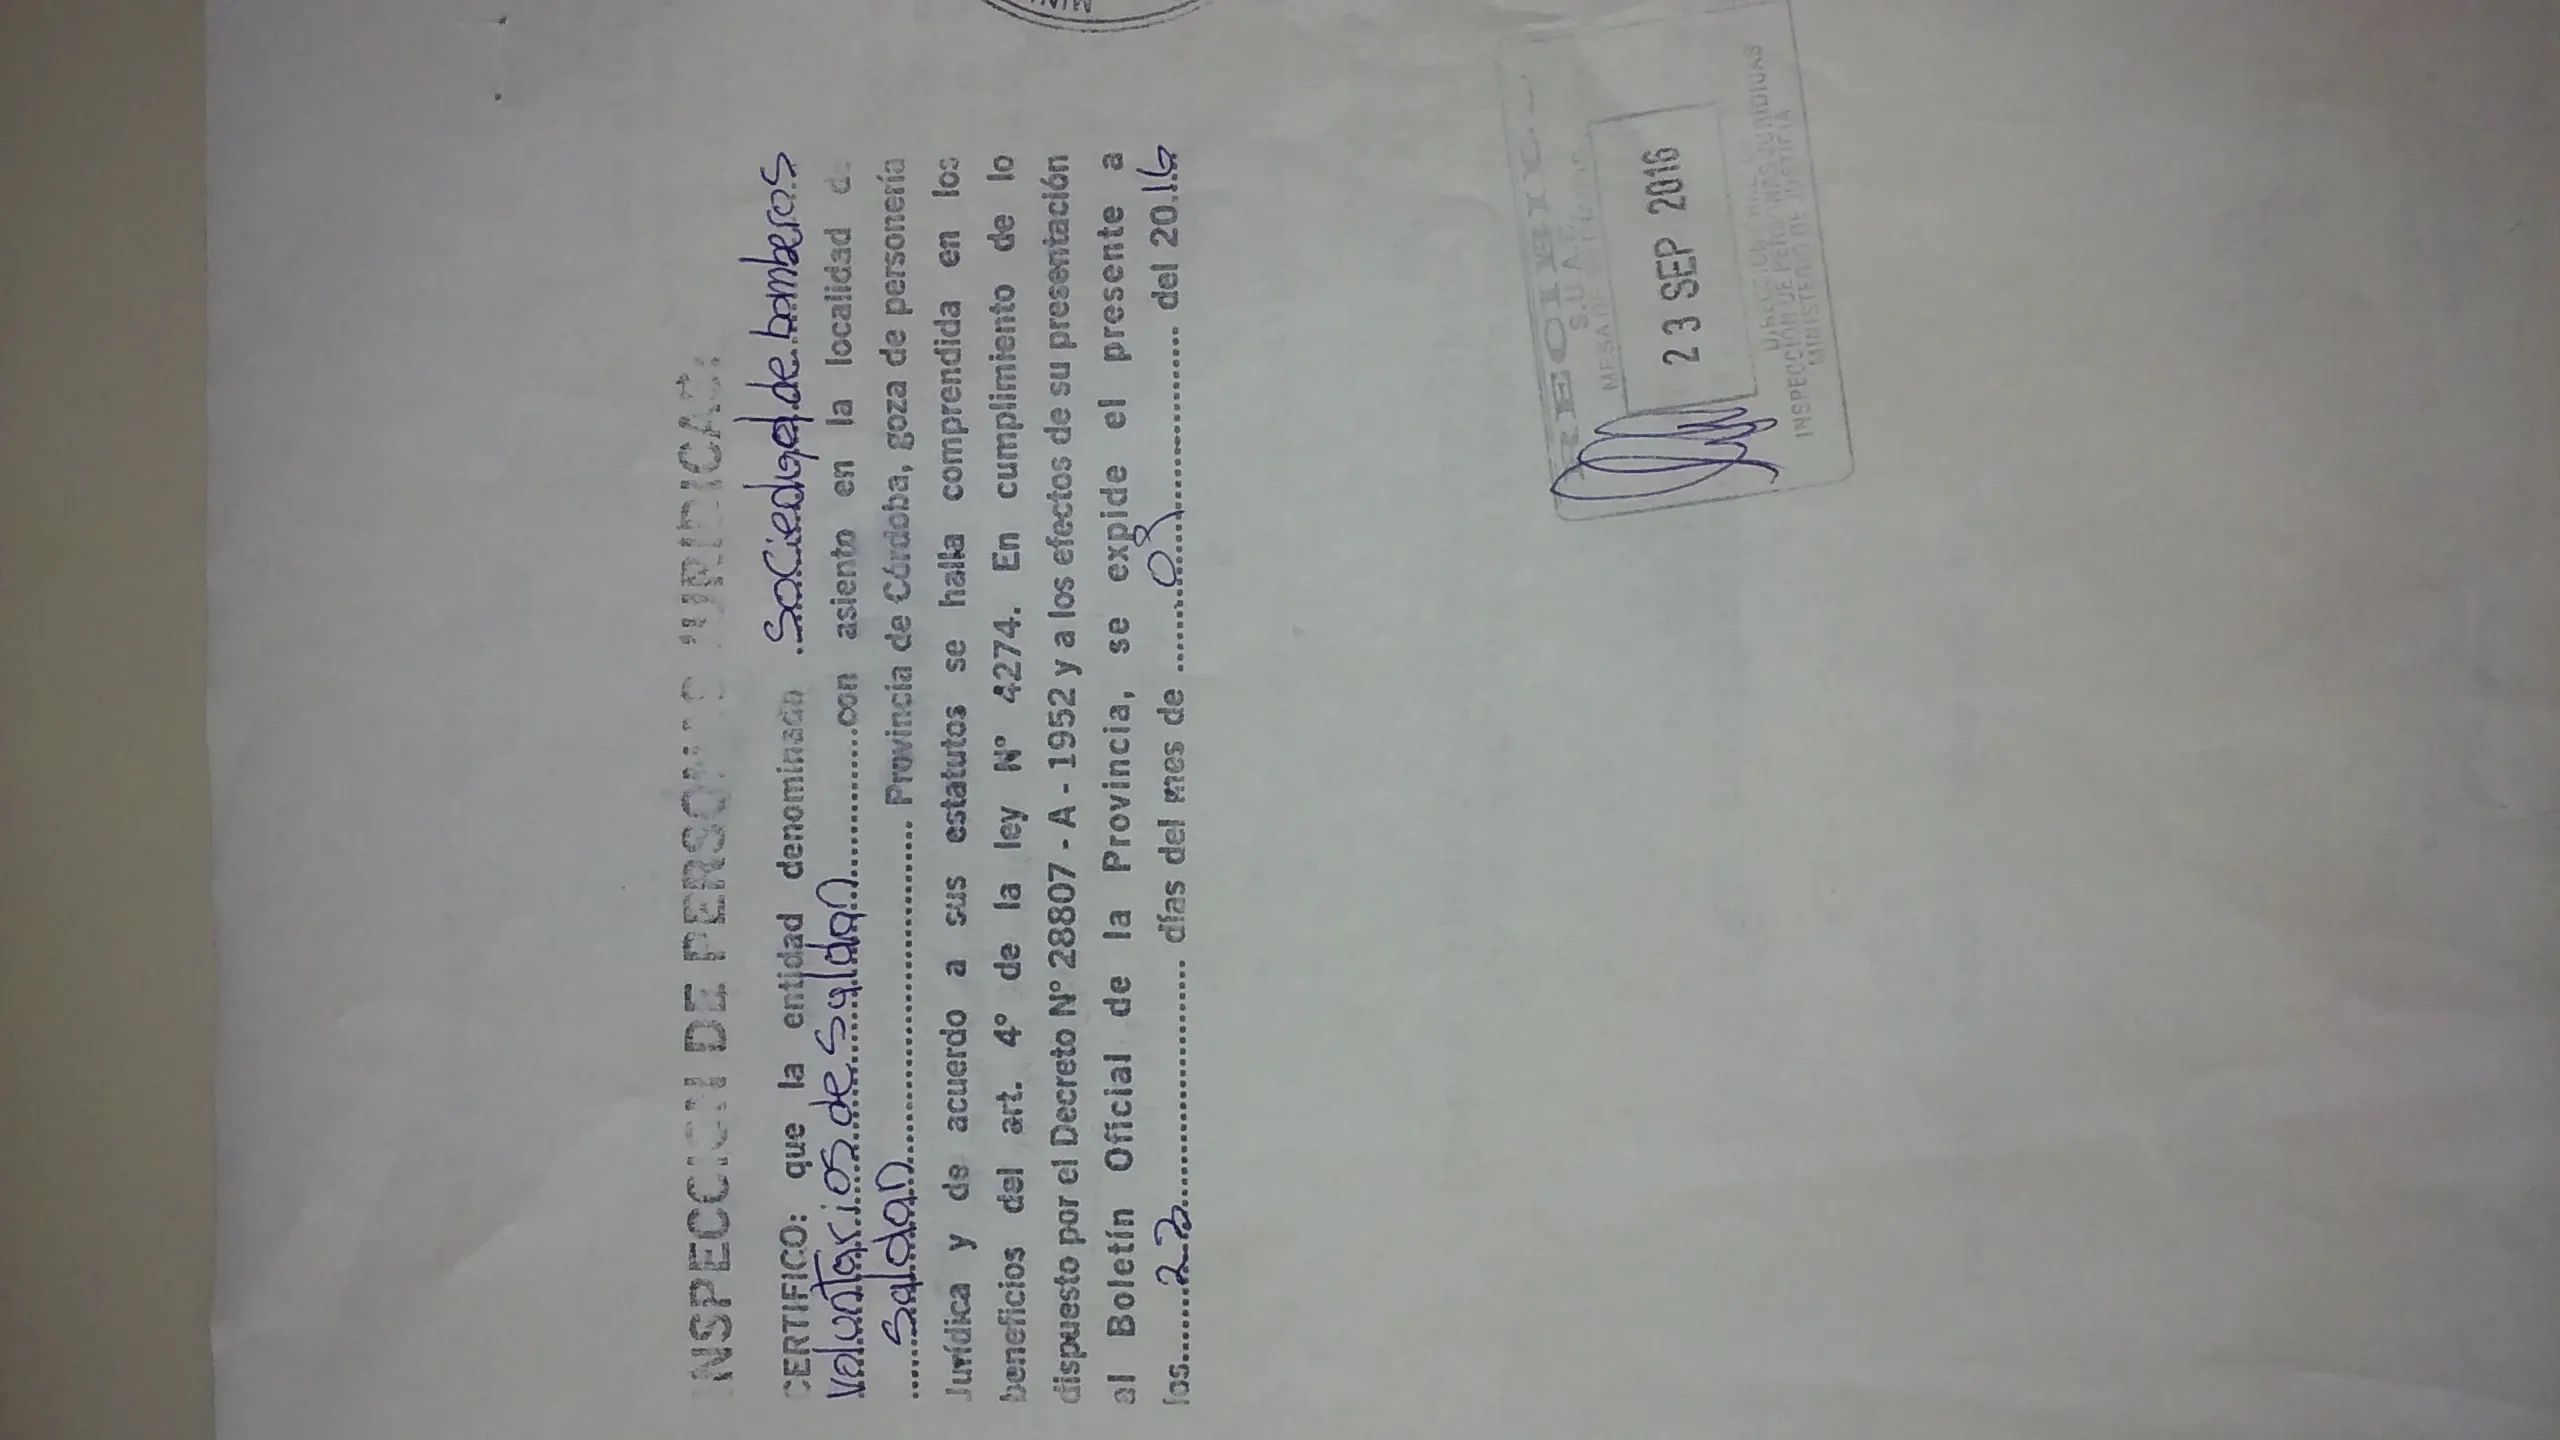 INSPECCION DE PERSONAS JURIDICAS.
CERTIFICO: que la entidad denominada Sociedad de bomberos
Voluntarios de Saldan con asiento en la localidad de
Saldan Provincia de Córdoba, goza de personería
Jurídica y de acuerdo a sus estatutos se halla comprendida en los
beneficios del art. 4° de la ley N° 4274. En cumplimiento de lo
dispuesto por el Decreto N° 28807 - A - 1952 y a los efectos de su presentación
al Boletín Oficial de la Provincia, se expide el presente a
los 23 días del mes de 09 del 2016
RECIBIDO
S.U.A.C.
MESA DE
23 SEP 2016
INSPECCIÓN DE PERSONAS JURIDICAS
MINISTERIO DE JUSTICIA